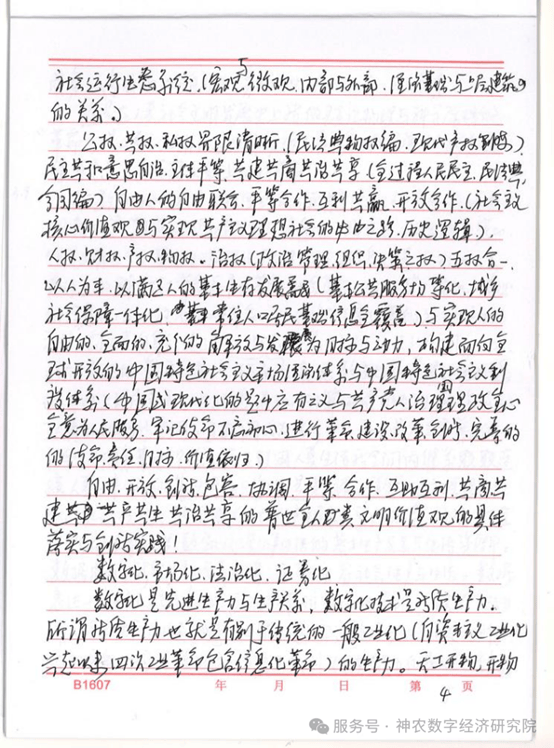 5
社会运行生态系统、(宏观与微观、内部与外部、经济基础与上层建筑
的关系。)
公权、共权、私权界限清晰、(民法典物权编、现代产权制度)
民主共和意思自治、主体平等、共建共商共治共享(全过程人民民主、民法典
合同编)自由人的自由联合、平等合作、互利共赢、开放合作、(社会主义
核心价值观与实现共产主义理想社会的必由之路、历史逻辑)、
人权、财权、产权、物权、治权(政治管理、组织、决策之权)五权合一、
以人为本、以满足人的基本生存发展需要(基本公共服务均等化、城乡
社会保障一体化、常住人口居民基础信息全覆盖)、与实现人的
自由的、全面的、充分的解放与发展为目标与动力、构建面向全
球开放的中国特色社会主义市场经济体系与中国特色社会主义制
度体系(中国式现代化的题中应有之义与共产党人治国理政全心
全意为人民服务、牢记使命不忘初心、进行革命、建设、改革、创新、完善的
的使命、责任、目标、价值依归。)
自由、开放、创新、包容、协调、平等、合作、互助互利、共商共
建共产共生共治共享的普世全人类文明价值观的具体
落实与创新实践!
数字化、市场化、法治化、证券化
数字化是先进生产力与生产关系,数字化技术是新质生产力。
所谓新质生产力也就是有别于传统的一般工业化(自资本主义工业化
兴起以来四次工业革命包含信息化革命)的生产力。天工开物,开物
B1607 年 月 日 第 4 页
服务号 · 神农数字经济研究院